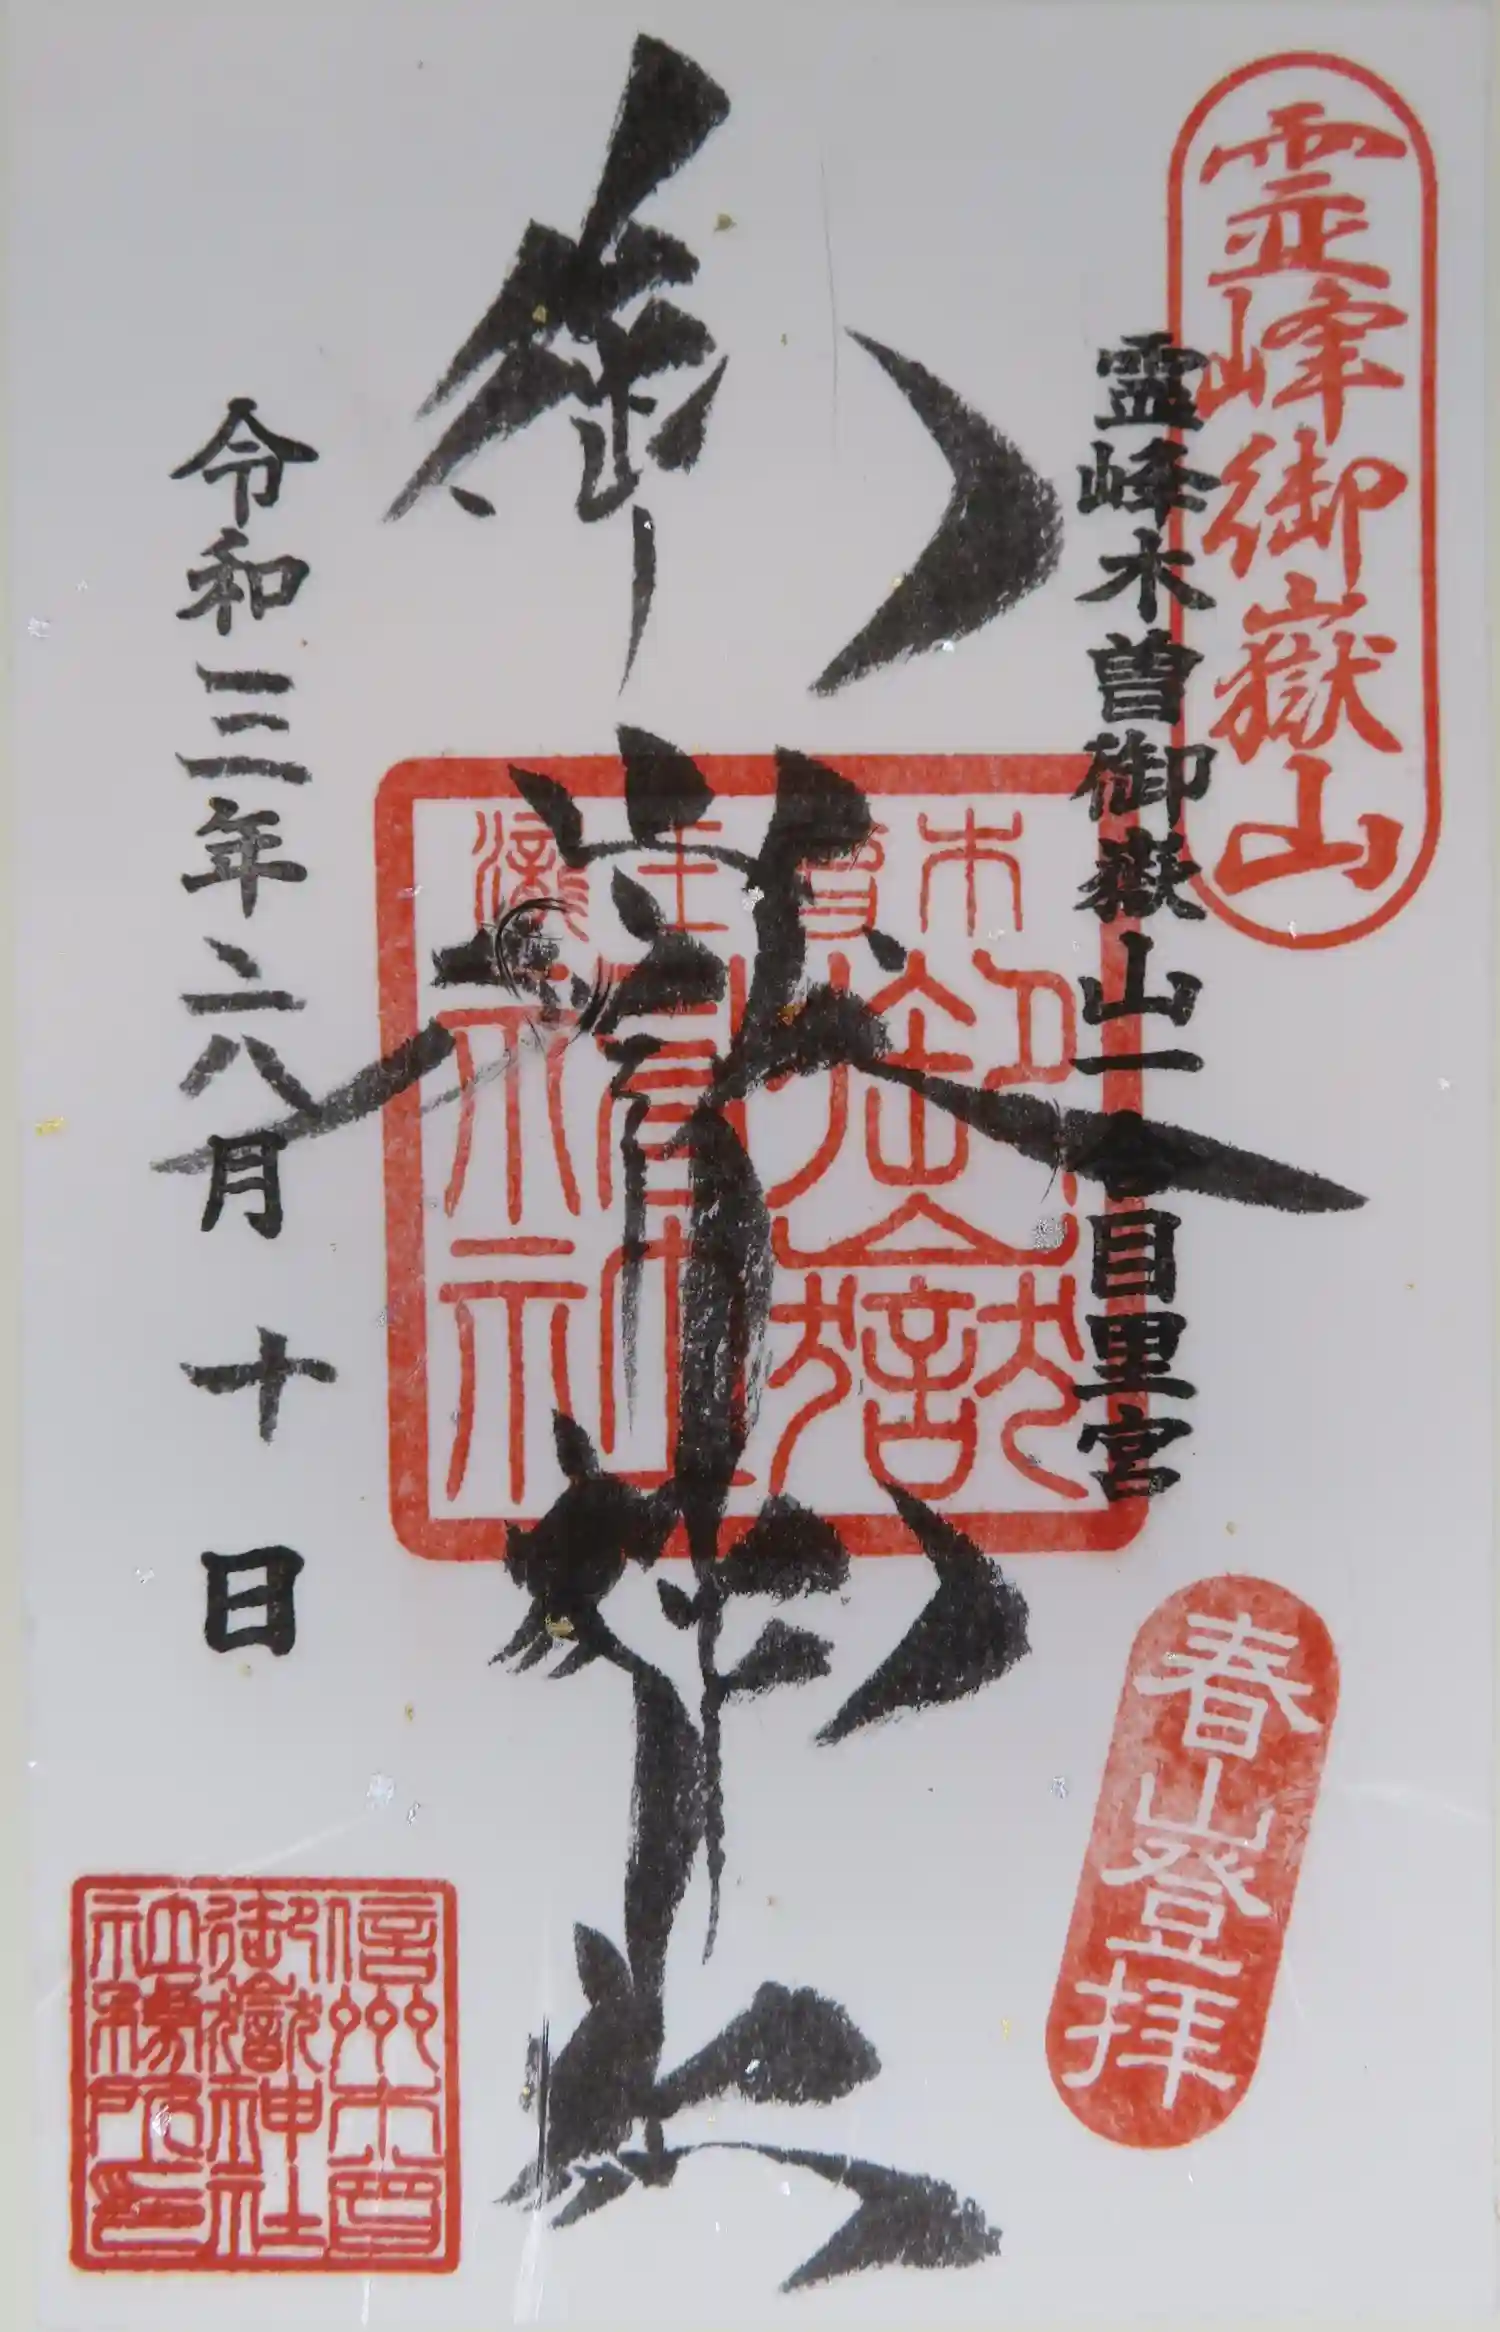 霊峰御嶽山
霊峰木曽御嶽山一合目里宮
春山登拝
御嶽神社
木曽王滝
御嶽神社
令和三年六月十日
信州木曽
御嶽神社
社務所印